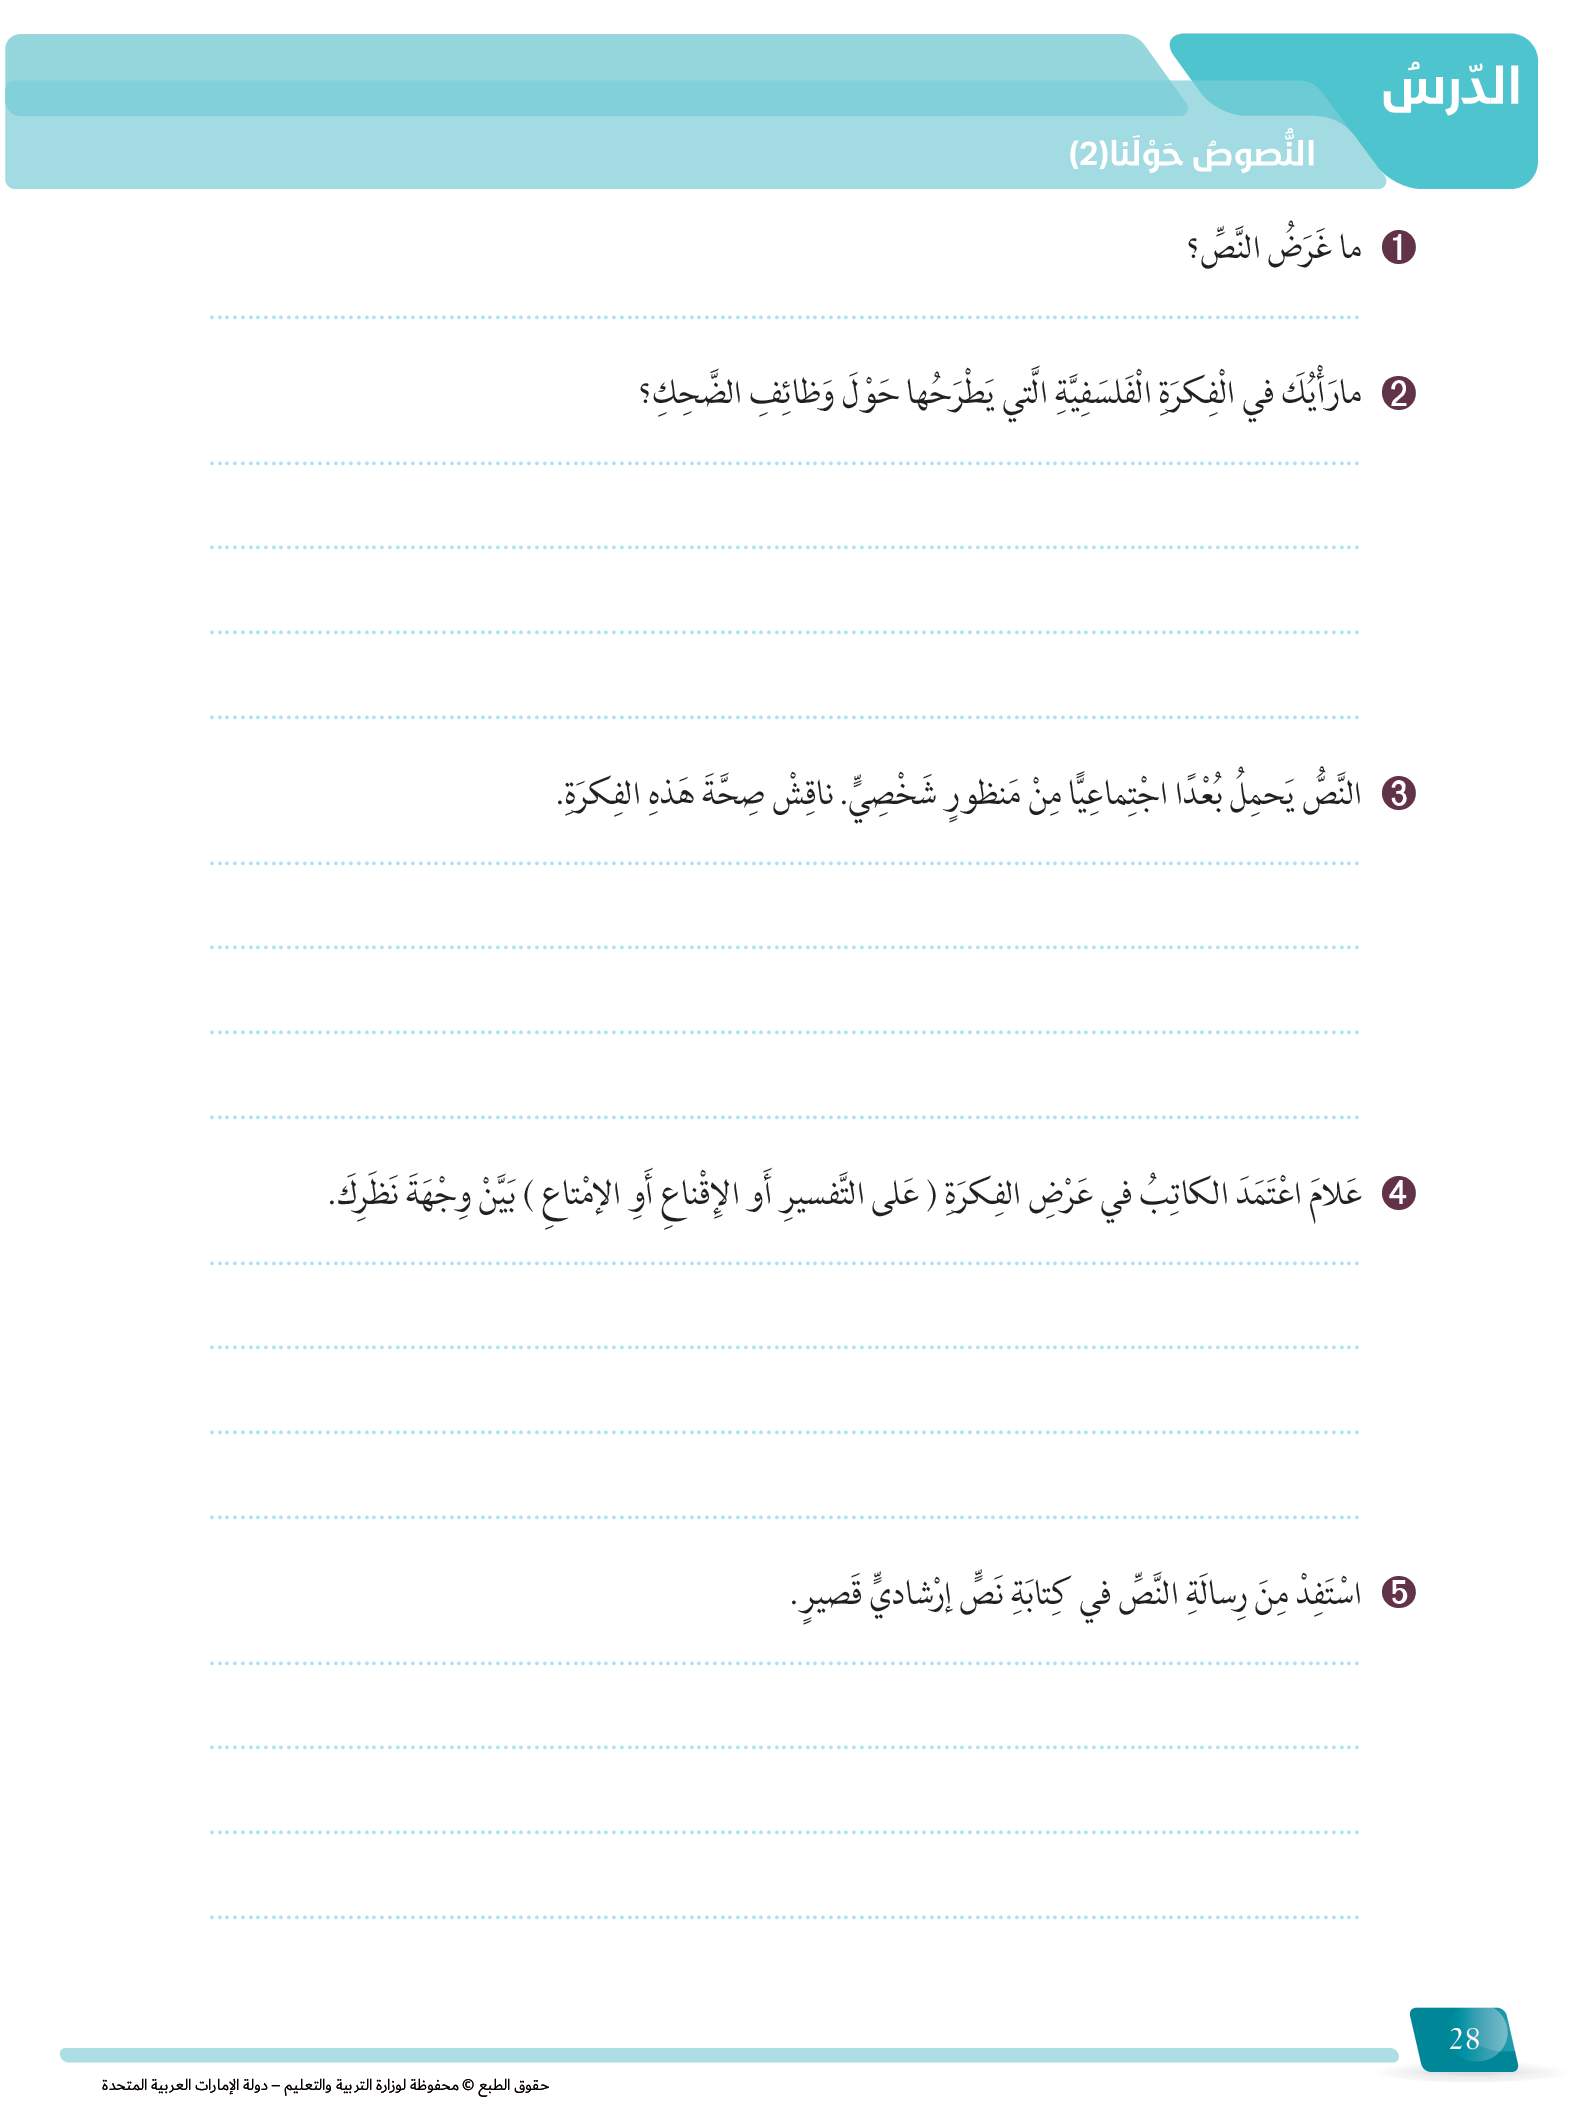 الدّرسُ
النُّصوصُ حَوْلَنا(2)
1 ما غَرَضُ النَّصِّ؟
2 مارَأْيُكَ في الْفِكرَةِ الْفَلسَفِيَّةِ الَّتي يَطْرَحُها حَوْلَ وَظائِفِ الضَّحِكِ؟
3 النَّصُّ يَحمِلُ بُعْدًا اجْتِماعِيًّا مِنْ مَنظورٍ شَخْصِيٍّ. ناقِشْ صِحَّةَ هَذهِ الفِكرَةِ.
4 عَلامَ اعْتَمَدَ الكاتِبُ في عَرْضِ الفِكرَةِ ( عَلى التَّفسيرِ أَو الإِقْناعِ أَوِ الإمْتاعِ ) بَيَّنْ وِجْهَةَ نَظَرِكَ.
5 اسْتَفِدْ مِنَ رِسالَةِ النَّصِّ في كِتابَةِ نَصٍّ إرْشاديٍّ قَصيرٍ.
28
حقوق الطبع © محفوظة لوزارة التربية والتعليم – دولة الإمارات العربية المتحدة